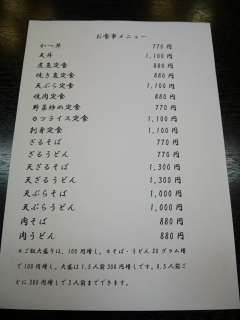 お食事メニュー
かつ丼 770円
天丼 1,100円
煮魚定食 880円
焼き魚定食 880円
天ぷら定食 1,100円
焼肉定食 880円
野菜炒め定食 770円
オムライス定食 1,100円
刺身定食 1,100円
ざるそば 770円
ざるうどん 770円
天ざるそば 1,300円
天ざるうどん 1,300円
天ぷらそば 1,000円
天ぷらうどん 1,000円
肉そば 880円
肉うどん 880円
※ご飯大盛りは、100円増し。※そば・うどん50グラム増
で100円増し。大盛は1.5人前300円増しです。0.5人前ご
とに300円増しで3人前までできます。